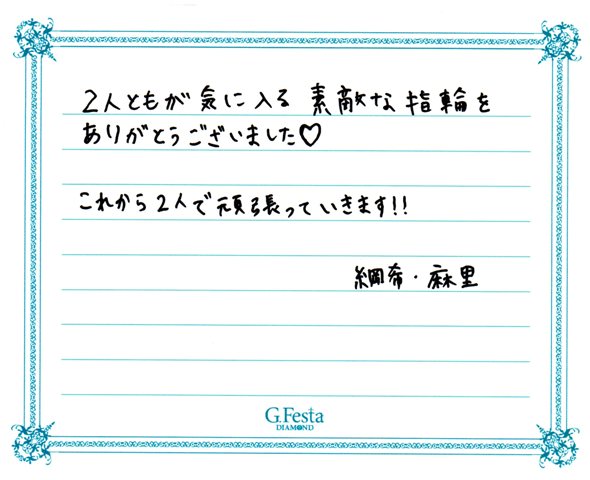 2人ともが気に入る 素敵な指輪を
ありがとうございました♡
これから2人で頑張っていきます!!
綱希・麻里
G.Festa
DIAMOND